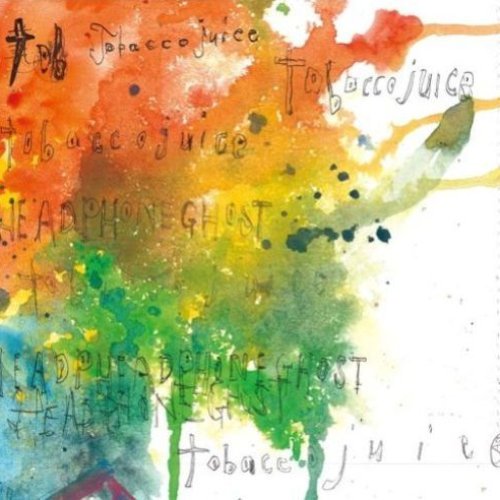 tob Tobacco juice
Tobacco juice
tobacco juice
HEADPHONEGHOST
HEADPHEADPHONEGHOST
HEADPHONEGHOST
tobacco juice